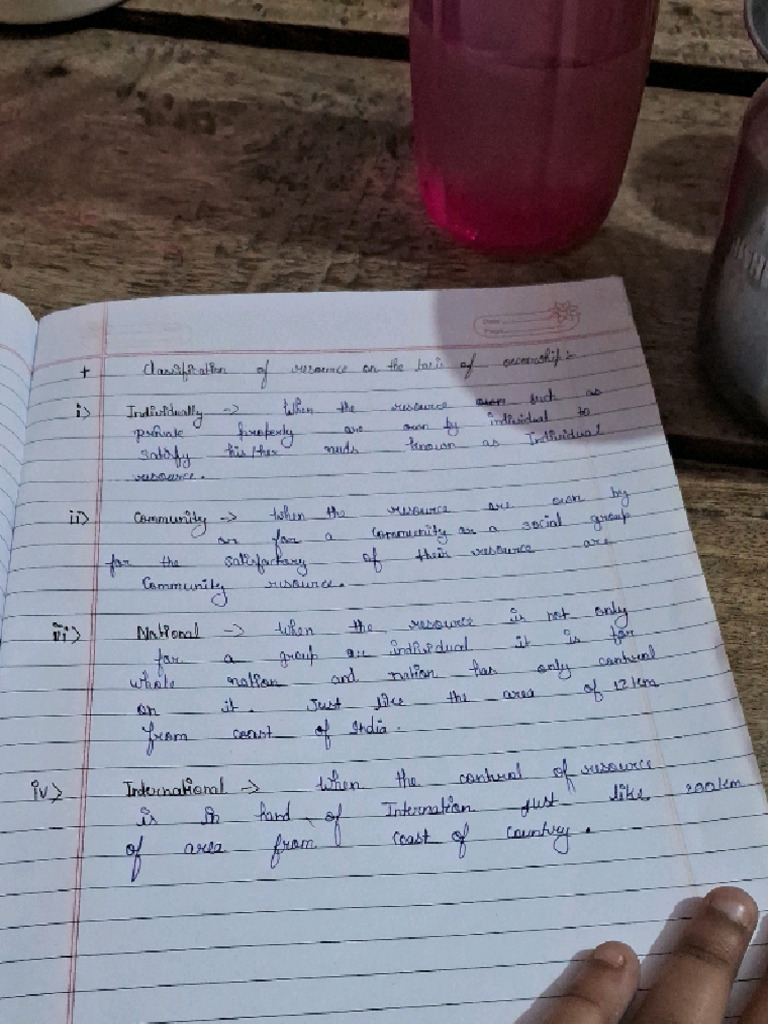 + Classification of resource on the basis of ownership :-
i> Individually -> When the resource such as
private property are own by individual to
satisfy his/her needs known as Individual
resource.
ii> Community -> When the resource are own by
or for a community or a social group
for the satisfactory of their resource are
Community resource.
iii> National -> When the resource is not only
for a group or individual it is for
whole nation and nation has only contural
on it. Just like the area of 12 km
from coast of India.
iv> International -> When the contural of resource
is in hand of Internation Just like 200km
of area from coast of country.